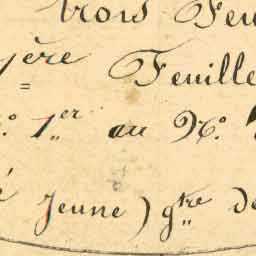 trois Feu
1ère Feuille
o. 1er au No.
é Jeune) gtre de